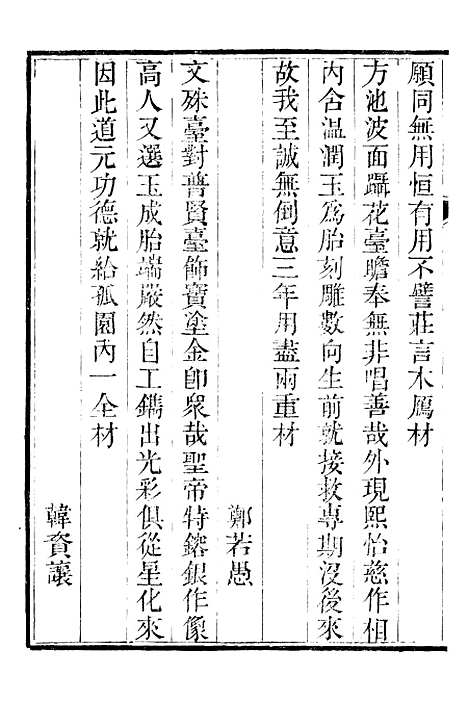 願同無用恒有用不譬莊言木鴈材
方池波面躡花臺瞻奉無非唱善哉外現熙怡慈作相
內含溫潤玉爲胎刻雕數向生前就接救專期沒後來
故我至誠無倒意三年用盡兩重材
鄭若愚
文殊臺對普賢臺飾寶塗金卽衆哉聖帝特鎔銀作像
高人又選玉成胎端嚴然自工鐫出光彩俱從星化來
因此道元功德就給孤園內一全材
韓資讓